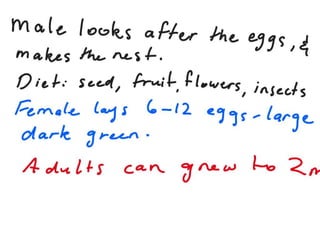 male looks after the eggs, &
makes the nest.
Diet: seed, fruit, flowers, insects
Female lays 6-12 eggs - large
dark green.
Adults can grow to 2m